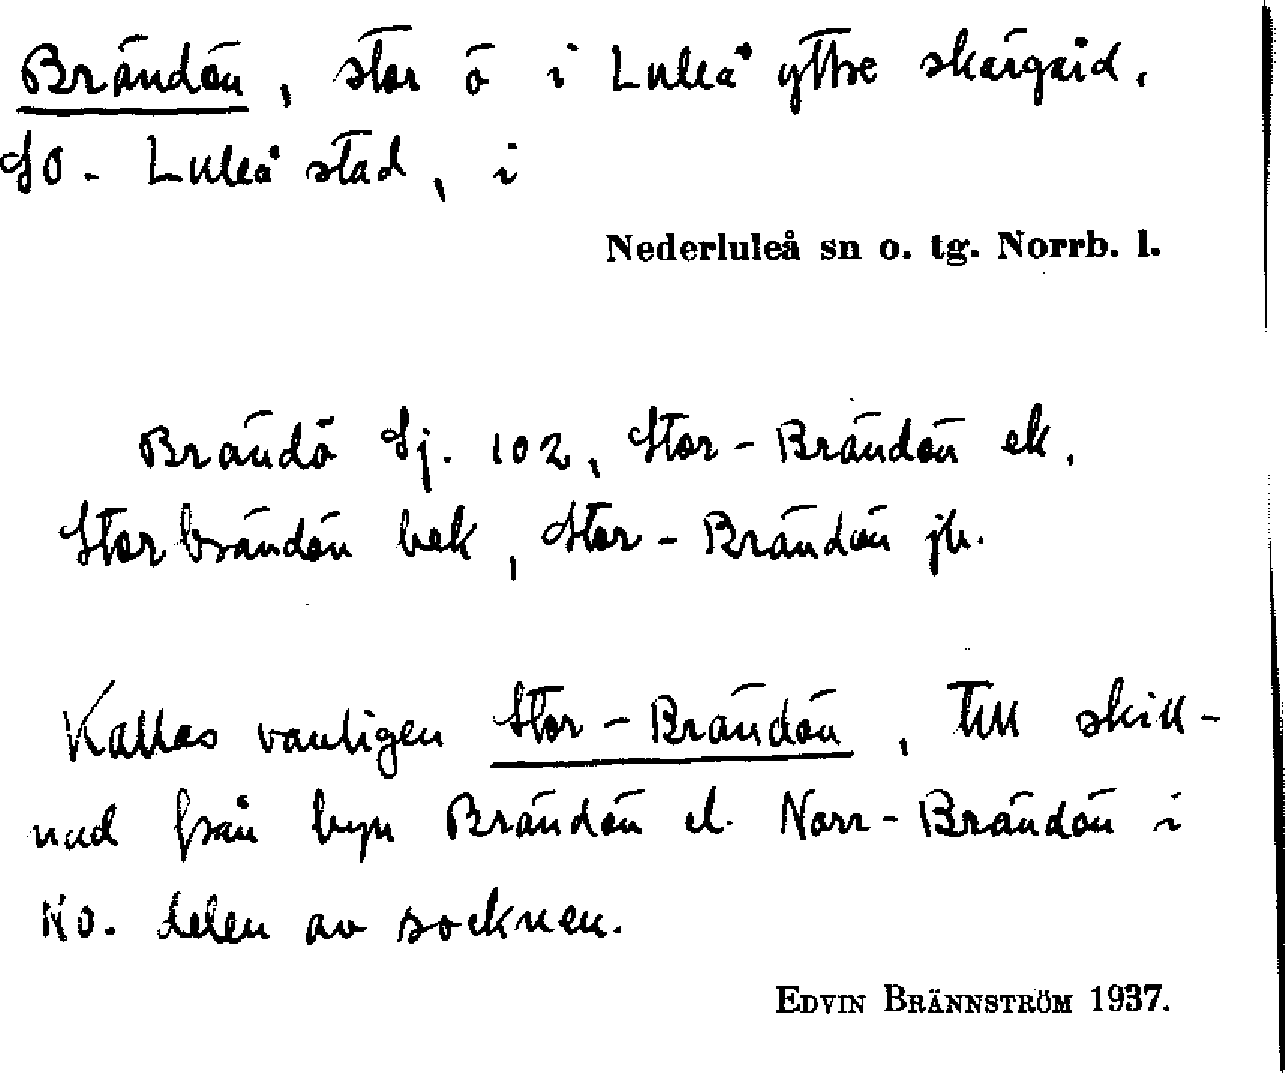 Brändön, stor ö i Luleå yttre skärgård,
SO. Luleå stad, i
Nederluleå sn o. tg. Norrb. l.
Brändö Sj. 102, Stor-Brändön ek,
Storbrändön bek, Stor-Brändön jb.
Kallas vanligen Stor-Brändön, till skill-
nad från byn Brändön el. Norr-Brändön i
NO. delen av socknen.
EDVIN BRÄNNSTRÖM 1937.